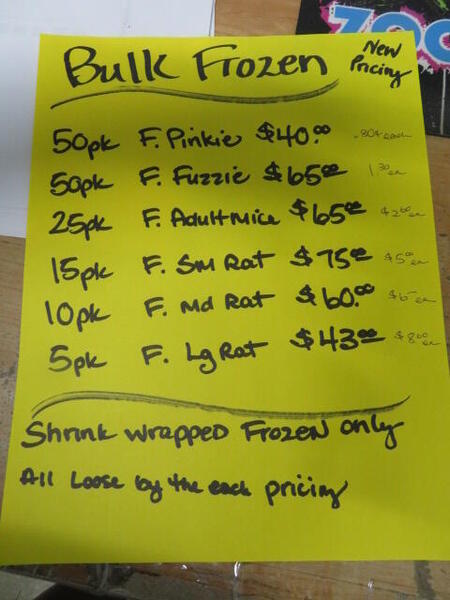 ZOO
Bulk Frozen
New
Pricing
50pk F. Pinkie $40.00 .80¢ each
50pk F. Fuzzie $65.00 1.30 ea
25pk F. Adult Mice $65.00 $2.60 ea
15pk F. Sm Rat $75.00 $5.00 ea
10pk F. Md Rat $60.00 $6- ea
5pk F. Lg Rat $43.00 $8.00 ea
Shrink wrapped Frozen only
All Loose by the each pricing